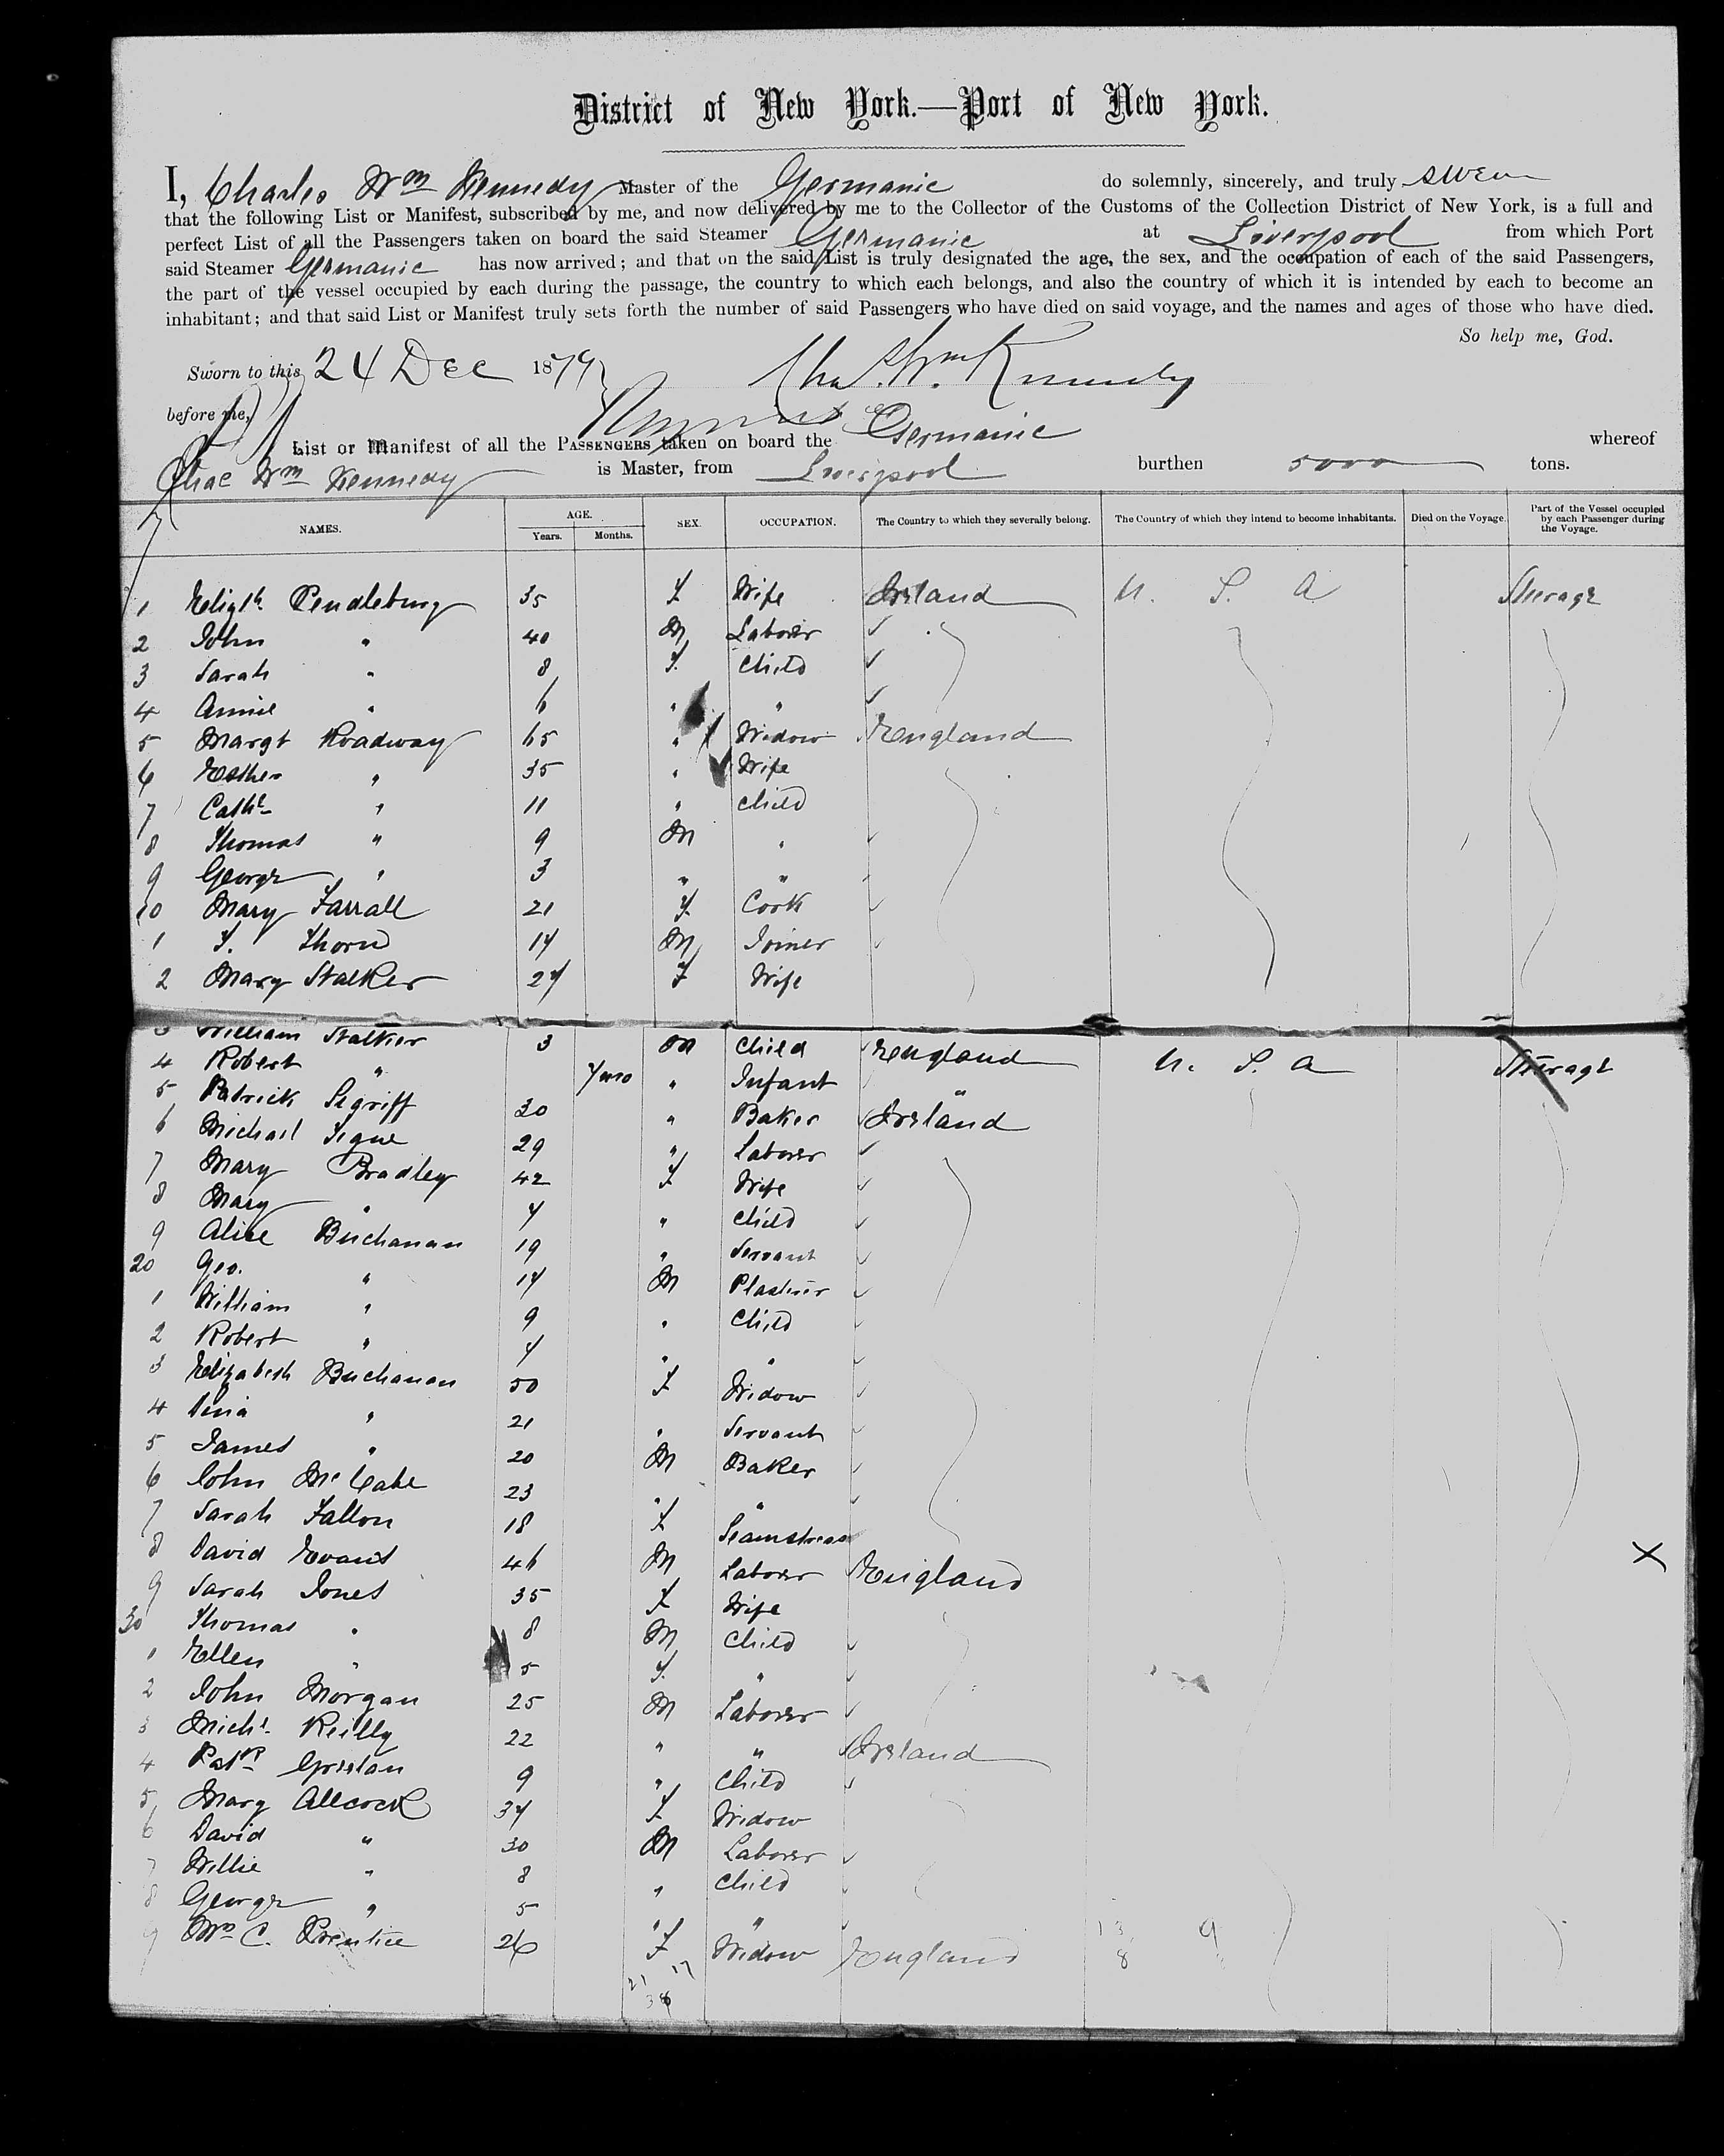 District of New York.—Port of New York.
I, Charles Wm Kennedy Master of the Germanic do solemnly, sincerely, and truly swear
that the following List or Manifest, subscribed by me, and now delivered by me to the Collector of the Customs of the Collection District of New York, is a full and
perfect List of all the Passengers taken on board the said Steamer Germanic at Liverpool from which Port
said Steamer Germanic has now arrived; and that on the said List is truly designated the age, the sex, and the occupation of each of the said Passengers,
the part of the vessel occupied by each during the passage, the country to which each belongs, and also the country of which it is intended by each to become an
inhabitant; and that said List or Manifest truly sets forth the number of said Passengers who have died on said voyage, and the names and ages of those who have died.
So help me, God.
Sworn to this 24 Dec 1879 Chas. Wm Kennedy
before me,
List or Manifest of all the Passengers taken on board the Germanic whereof
Chas Wm Kennedy is Master, from Liverpool burthen 5000 tons.
NAMES. AGE. Years. Months. SEX. OCCUPATION. The Country to which they severally belong. The Country of which they intend to become inhabitants. Died on the Voyage. Part of the Vessel occupied by each Passenger during the Voyage.
1 Elizth Pendlebury 35 F Wife Ireland U. S. A Steerage
2 John " 40 M Laborer
3 Sarah " 8 F Child
4 Annie " 6 " "
5 Margt Roadway 65 " Widow England
6 Esther " 35 " Wife
7 Cathe " 11 " Child
8 Thomas " 9 M "
9 George " 3 " "
10 Mary Farrall 21 F Cook
1 T. Thorn 17 M Joiner
2 Mary Stalker 27 F Wife
3 William Stalker 3 M Child England U. S. A Steerage
4 Robert " 7 mo " Infant "
5 Patrick 30 " Baker Ireland
6 Michael 29 " Laborer
7 Mary Bradley 42 F Wife
8 Mary " 7 " Child
9 Alice Buchanan 19 " Servant
20 Geo. " 17 M Plasterer
1 William " 9 " Child
2 Robert " 7 " "
3 Elizabeth Buchanan 50 F Widow
4 " 21 " Servant
5 James " 20 M Baker
6 John McCabe 23 " "
7 Sarah Fallon 18 F Seamstress
8 David Evans 46 M Laborer England X
9 Sarah Jones 35 F Wife
30 Thomas " 8 M Child
1 Ellen " 5 F "
2 John Morgan 25 M Laborer
3 Michl Reilly 22 " " Ireland
4 Patk 9 " Child
5 Mary Allcock 37 F Widow
6 David " 30 M Laborer
7 Willie " 8 " Child
8 George " 5 " "
9 Mrs C. Prentice 26 F Widow England 13 9
8
21 17
38